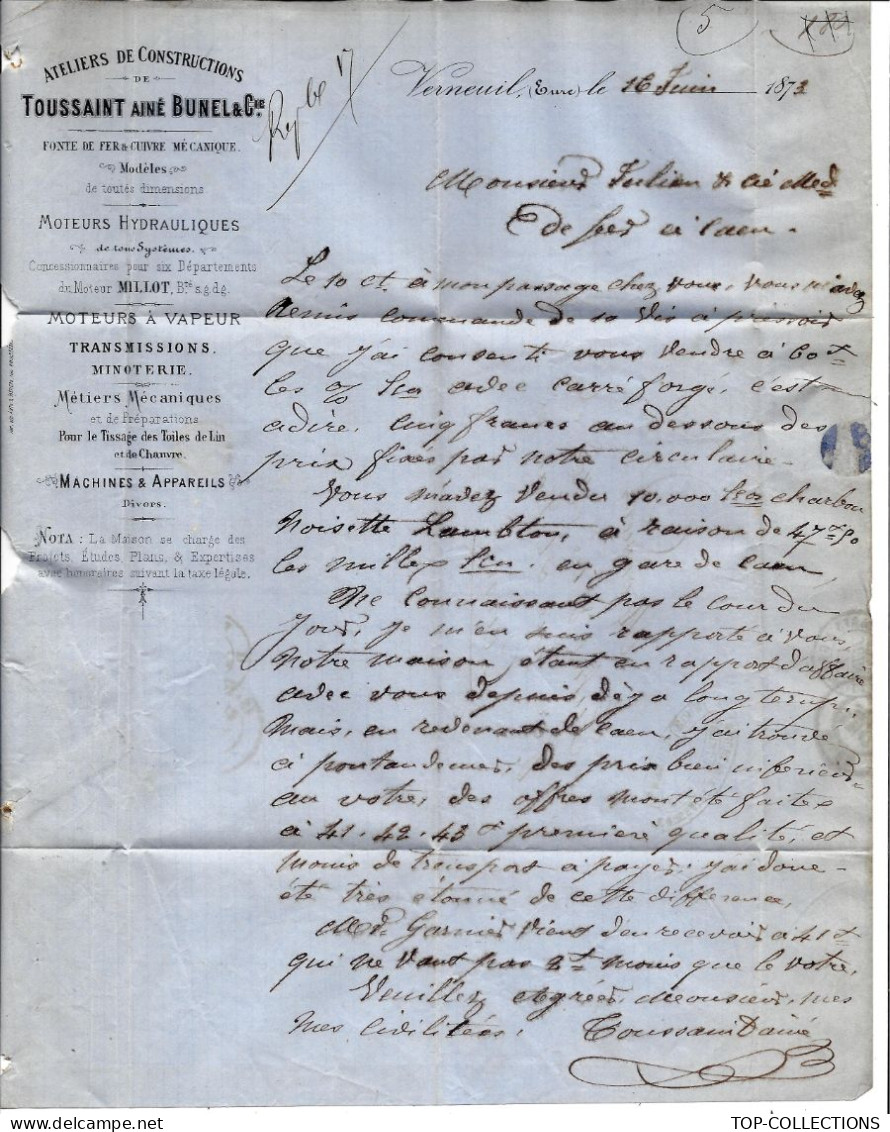 5
ATELIERS DE CONSTRUCTIONS
DE
TOUSSAINT AINÉ BUNEL & Cie.
FONTE DE FER & CUIVRE MÉCANIQUE.
Modèles
de toutes dimensions
MOTEURS HYDRAULIQUES
de tous Systèmes.
Concessionnaires pour six Départements
du Moteur MILLOT, Bté s.g.dg.
MOTEURS À VAPEUR
TRANSMISSIONS.
MINOTERIE.
Métiers Mécaniques
et de Préparations
Pour le Tissage des Toiles de Lin
et de Chanvre.
MACHINES & APPAREILS
Divers.
NOTA : La Maison se charge des
Projets, Études, Plans, & Expertises
avec honoraires suivant la taxe légale.
17
Verneuil, (Eure) le 16 Juin 1873
Monsieur Julien & Cie Md
de fer à Caen.
Le 10 ct. à mon passage chez vous, vous m'avez
Remis commande de 10 Vis à pressoir
que j'ai consenti vous vendre à 60 f
les % Kos avec carré forgé, c'est
adire, cinq francs au dessous des
prix fixés par notre circulaire.
Vous m'avez Vendu 10,000 Kos charbon
Noisette Lambton, à raison de 47 f 50
les milles Kos, en gare de Caen,
Ne connaissant pas le cour du
jour, je m'en suis rapporté à Vous,
notre maison étant en rapport d'affaire
avec vous depuis déja longtemps,
Mais, en revenant de Caen, j'ai trouvé
à pontaudemer, des prix bien inferieur
au votre, des offres m'ont été faites
à 41. 42. 43 f première qualité, et
moins de transport à payer, j'ai donc
été très étonné de cette difference,
Mr. Garnier vient d'en recevoir à 41 f
qui ne vaut pas 2 f moins que le votre,
Veuillez Agréer, Monsieur, mes
mes civilités. Toussaint ainé
TOP-COLLECTIONS